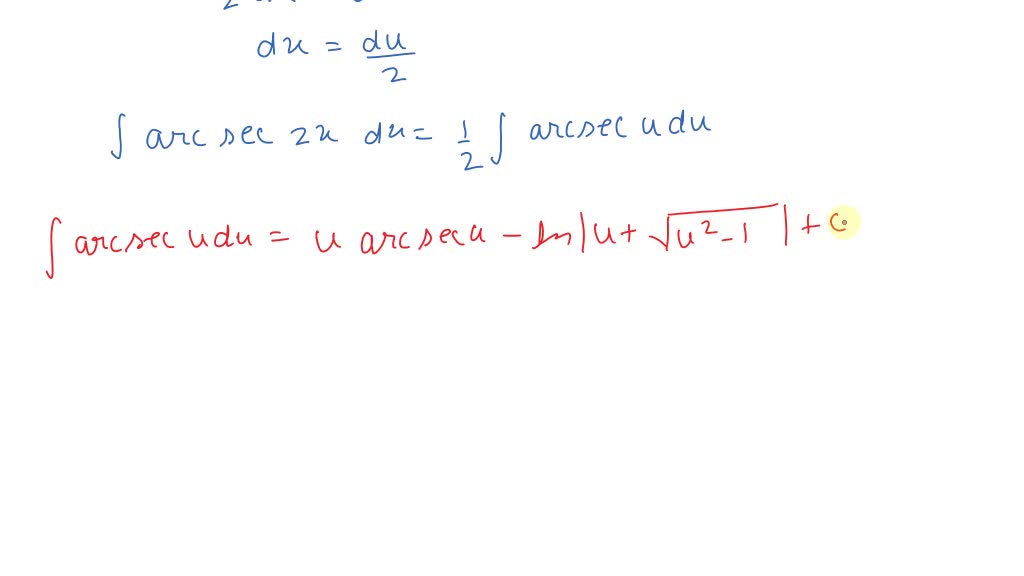 dx = du/2
∫ arc sec 2x dx = 1/2 ∫ arcsec u du
∫ arcsec u du = u arcsec u - ln|u + √(u² - 1)| + c